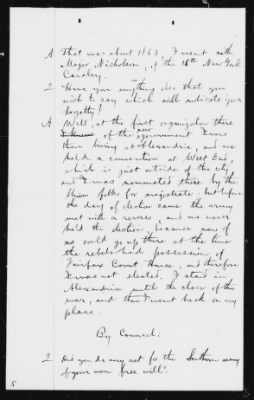 A That was about 1863, I went with
Major Nicholson, of the 16th New York
Cavalry.
Q Have you anything else that you
wish to say which will indicate your
loyalty?
A Well, at the first organization there
of the new government I was
then living at Alexandria, and we
held a convention at West End,
which is just outside of the city
and I was nominated there by the
Union folks for magistrate: but before
the day of election came the army
met with a reverse, and we never
held the election, because none of
us could go up there at the time
the rebels had possession of
Fairfax Court House, and therefore
I was not elected. I staid in
Alexandria until the close of the
war, and then I went back on my
place.
By Counsel:
Q Did you do any act for the Southern army
of your own free will?
5